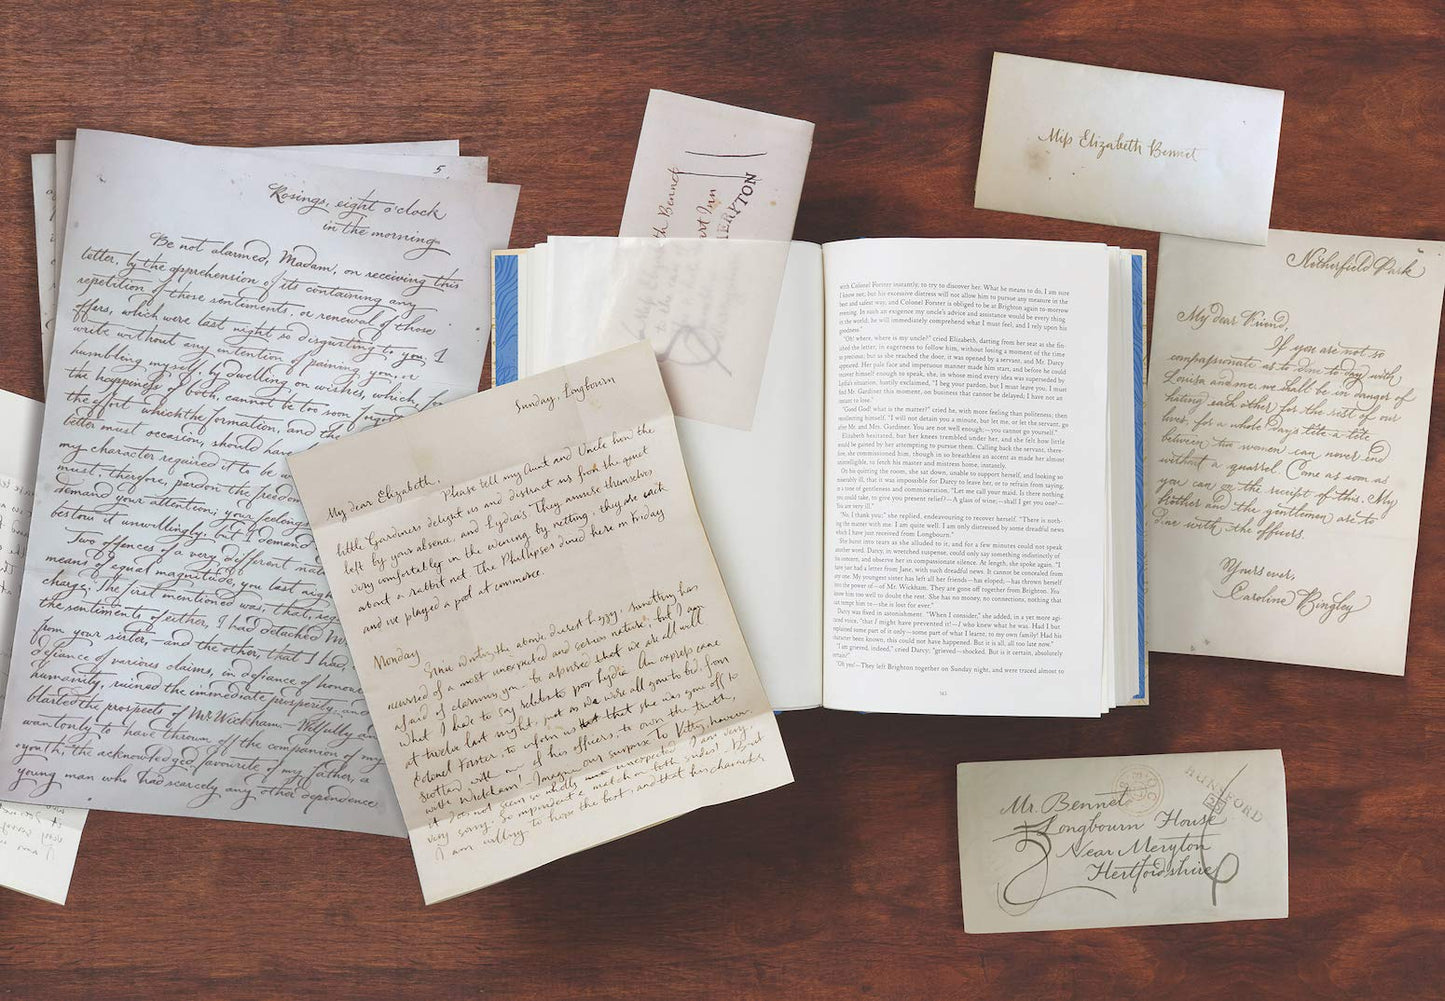 5
Rosings, eight o'clock
in the morning
Be not alarmed, Madam, on receiving this
letter, by the apprehension of its containing any
repetition of those sentiments, or renewal of those
offers, which were last night so disgusting to you. I
write without any intention of paining you, or
humbling myself, by dwelling on wishes, which, for
the happiness of both, cannot be too soon forgot
the effort which the formation, and the
letter must occasion, should have
my character required it to be w
must, therefore, pardon the freedo
demand your attention; your feelings
bestow it unwillingly, but I demand
Two offences of a very different nat
means of equal magnitude, you last nigh
charge. The first mentioned was, that, reg
the sentiments of either, I had detached M
from your sister,—and the other, that I had,
defiance of various claims, in defiance of honour
humanity, ruined the immediate prosperity, and
blasted the prospects of Mr. Wickham.—Wilfully an
wantonly to have thrown off the companion of my
youth, the acknowledged favourite of my father, a
young man who had scarcely any other dependence
Sunday, Longbourn
My dear Elizabeth,
Please tell my Aunt and Uncle how the
little Gardiners delight us and distract us from the quiet
left by your absence, and Lydia's. They amuse themselves
very comfortably in the evening by netting; they are each
about a rabbit net. The Phillipses dined here on Friday
and we played a pool at commerce.
Monday
Since writing the above, dearest Lizzy, something has
occurred of a most unexpected and serious nature; but I am
afraid of alarming you—be assured that we are all well.
What I have to say relates to poor Lydia. An express came
at twelve last night, just as we were all gone to bed, from
Colonel Forster, to inform us that she was gone off to
Scotland with one of his officers; to own the truth,
with Wickham! Imagine our surprise. To Kitty, however,
it does not seem so wholly unexpected. I am very,
very sorry. So imprudent a match on both sides! But
I am willing to hope the best, and that his character
th Bennet
art Inn
MERYTON
with Colonel Forster instantly, to try to discover her. What he means to do, I am sure
I know not; but his excessive distress will not allow him to pursue any measure in the
best and safest way, and Colonel Forster is obliged to be at Brighton again to-morrow
evening. In such an exigence my uncle's advice and assistance would be every thing
in the world; he will immediately comprehend what I must feel, and I rely upon his
goodness."
"Oh! where, where is my uncle?" cried Elizabeth, darting from her seat as she fin-
ished the letter, in eagerness to follow him, without losing a moment of the time
so precious; but as she reached the door, it was opened by a servant, and Mr. Darcy
appeared. Her pale face and impetuous manner made him start, and before he could
recover himself enough to speak, she, in whose mind every idea was superseded by
Lydia's situation, hastily exclaimed, "I beg your pardon, but I must leave you. I must
find Mr. Gardiner this moment, on business that cannot be delayed; I have not an
instant to lose."
"Good God! what is the matter?" cried he, with more feeling than politeness; then
recollecting himself, "I will not detain you a minute, but let me, or let the servant, go
after Mr. and Mrs. Gardiner. You are not well enough;—you cannot go yourself."
Elizabeth hesitated, but her knees trembled under her, and she felt how little
would be gained by her attempting to pursue them. Calling back the servant, there-
fore, she commissioned him, though in so breathless an accent as made her almost
unintelligible, to fetch his master and mistress home, instantly.
On his quitting the room, she sat down, unable to support herself, and looking so
miserably ill, that it was impossible for Darcy to leave her, or to refrain from saying,
in a tone of gentleness and commiseration, "Let me call your maid. Is there nothing
you could take, to give you present relief?—A glass of wine;—shall I get you one?—
You are very ill."
"No, I thank you;" she replied, endeavouring to recover herself. "There is noth-
ing the matter with me. I am quite well. I am only distressed by some dreadful news
which I have just received from Longbourn."
She burst into tears as she alluded to it, and for a few minutes could not speak
another word. Darcy, in wretched suspense, could only say something indistinctly of
his concern, and observe her in compassionate silence. At length, she spoke again, "I
have just had a letter from Jane, with such dreadful news. It cannot be concealed from
any one. My youngest sister has left all her friends—has eloped;—has thrown herself
into the power of—of Mr. Wickham. They are gone off together from Brighton. You
know him too well to doubt the rest. She has no money, no connections, nothing that
can tempt him to—she is lost for ever."
Darcy was fixed in astonishment. "When I consider," she added, in a yet more agi-
tated voice, "that I might have prevented it!—I who knew what he was. Had I but
explained some part of it only—some part of what I learnt, to my own family! Had his
character been known, this could not have happened. But it is all, all too late now."
"I am grieved, indeed," cried Darcy; "grieved—shocked. But is it certain, absolutely
certain?"
"Oh yes!—They left Brighton together on Sunday night, and were traced almost to
Miss Elizabeth Bennet
Netherfield Park
My dear Friend,
If you are not so
compassionate as to dine to-day with
Louisa and me, we shall be in danger of
hating each other for the rest of our
lives, for a whole day's tête à tête
between two women can never end
without a quarrel. Come as soon as
you can on the receipt of this. My
brother and the gentlemen are to
dine with the officers.
Yours ever,
Caroline Bingley
HUNSFORD
22
Mr. Bennet
Longbourn House
Near Meryton
Hertfordshire